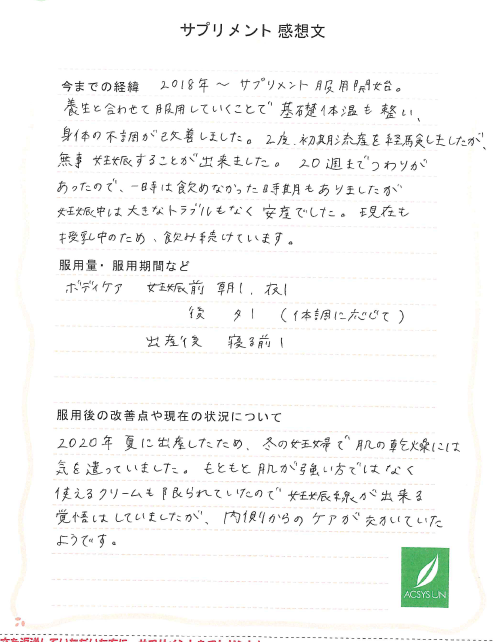 サプリメント 感想文
今までの経緯 2018年〜 サプリメント服用開始。
養生と合わせて服用していくことで 基礎体温も整い、
身体の不調が改善しました。2度、初期流産を経験しましたが、
無事 妊娠することが出来ました。20週までつわりが
あったので、一時は飲めなかった時期もありましたが
妊娠中は大きなトラブルもなく 安産でした。現在も
授乳中のため、飲み続けています。
服用量・服用期間など
ボディケア 妊娠前 朝1、夜1
後 夕1 (体調に応じて)
出産後 寝る前1
服用後の改善点や現在の状況について
2020年 夏に出産したため、冬の妊婦で肌の乾燥には
気を遣っていました。もともと肌が強い方ではなく
使えるクリームも限られていたので妊娠線が出来る
覚悟はしていましたが、内側からのケアが効いていた
ようです。
ACSYSUN